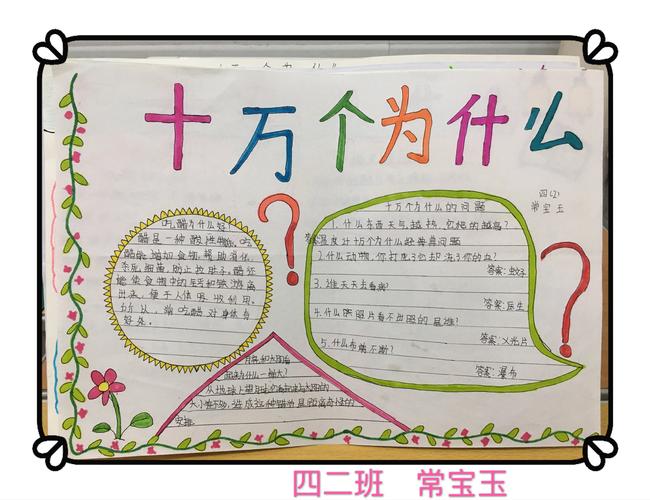 十万个为什么
四(2)
常宝玉
吃醋为什么好
醋是一种酸性物,吃
醋能增加食物,帮助消化,
杀死细菌,防止拉肚子,醋还
能使食物中的钙和铁游离
出来,便于人体吸收利用。
所以,常吃醋对身体有
好处。
十万个为什么的问题
1.什么东西天气越热,它爬的越高?
答案:温度计十万个为什么经典真问题
2.什么动物,你打死了它却流了你的血?
答案:蚊子
3.谁天天去看病?
答案:医生
4.什么照照片看不出照的是谁?
答案:X光片
5.什么布剪不断?
答案:瀑布
月亮和太阳看
起来为什么一样大?
从地球上望
大小差不多,造成这种
安排
四二班 常宝玉